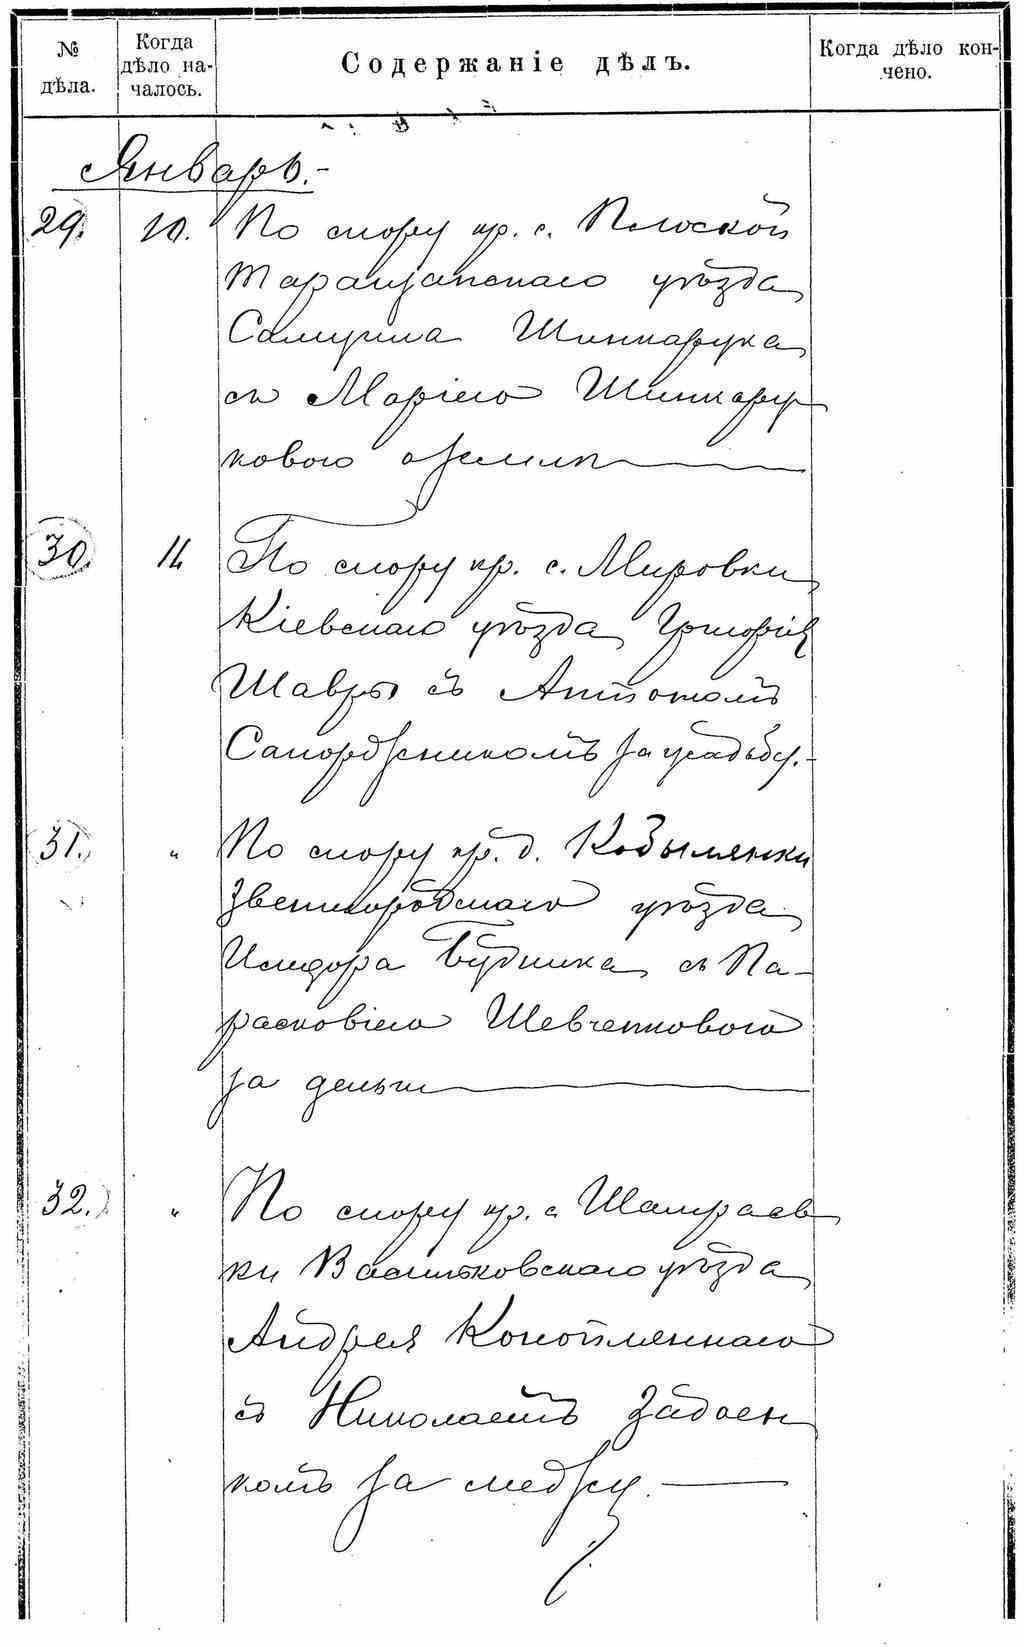 № дѣла.
Когда дѣло началось.
Содержаніе дѣлъ.
Когда дѣло кончено.
Январь.-
29. 10. По спору кр. с. Плоской
Таращанскаго уѣзда
Самуила Шинкарука
съ Маріею Шинкару
ковою о землѣ
30. 11 По спору кр. с. Мировки
Кіевскаго уѣзда Григорія
Шавры съ Антономъ
за усадьбу.-
31. " По спору кр. д. Кобылянки
Звенигородскаго уѣзда
Исидора Будника съ Па-
расковіею Шевченковою
за деньги
32. " По спору кр. с. Шамраев
ки Васильковскаго уѣзда
Андрея Конопляннаго
съ Николаемъ
комъ за межу.